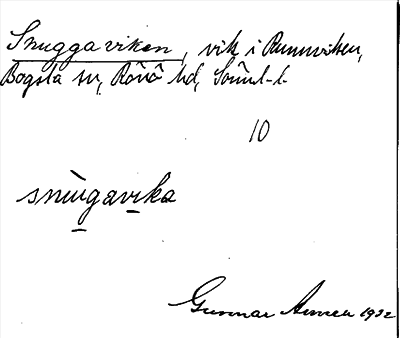 Snuggaviken, vik i Runnviken,
Bogsta sn, Rönö hd, Sörml. l.
10
snùgavika
Gunnar Amnea 1932